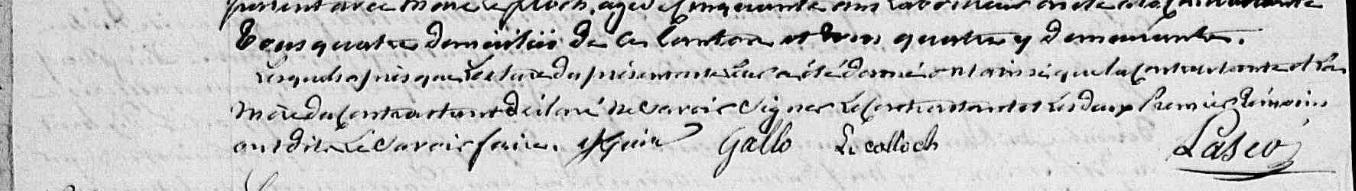 présent avec Marie Le ploch, agé cinquante ans Laboureur oncle à la Contractante
Tous quatre domiciliés de ce Canton et tous quatre y demeurants.
Lesquels après que Lecture du présent acte Leur a été donné ont ainsi que la Contractante et La
Mère du Contractant déclaré ne Savoir Signer Le Contractant et Les deux Premiers témoins
ont dit Le Savoir faire. Gallo Le colloch Lasco